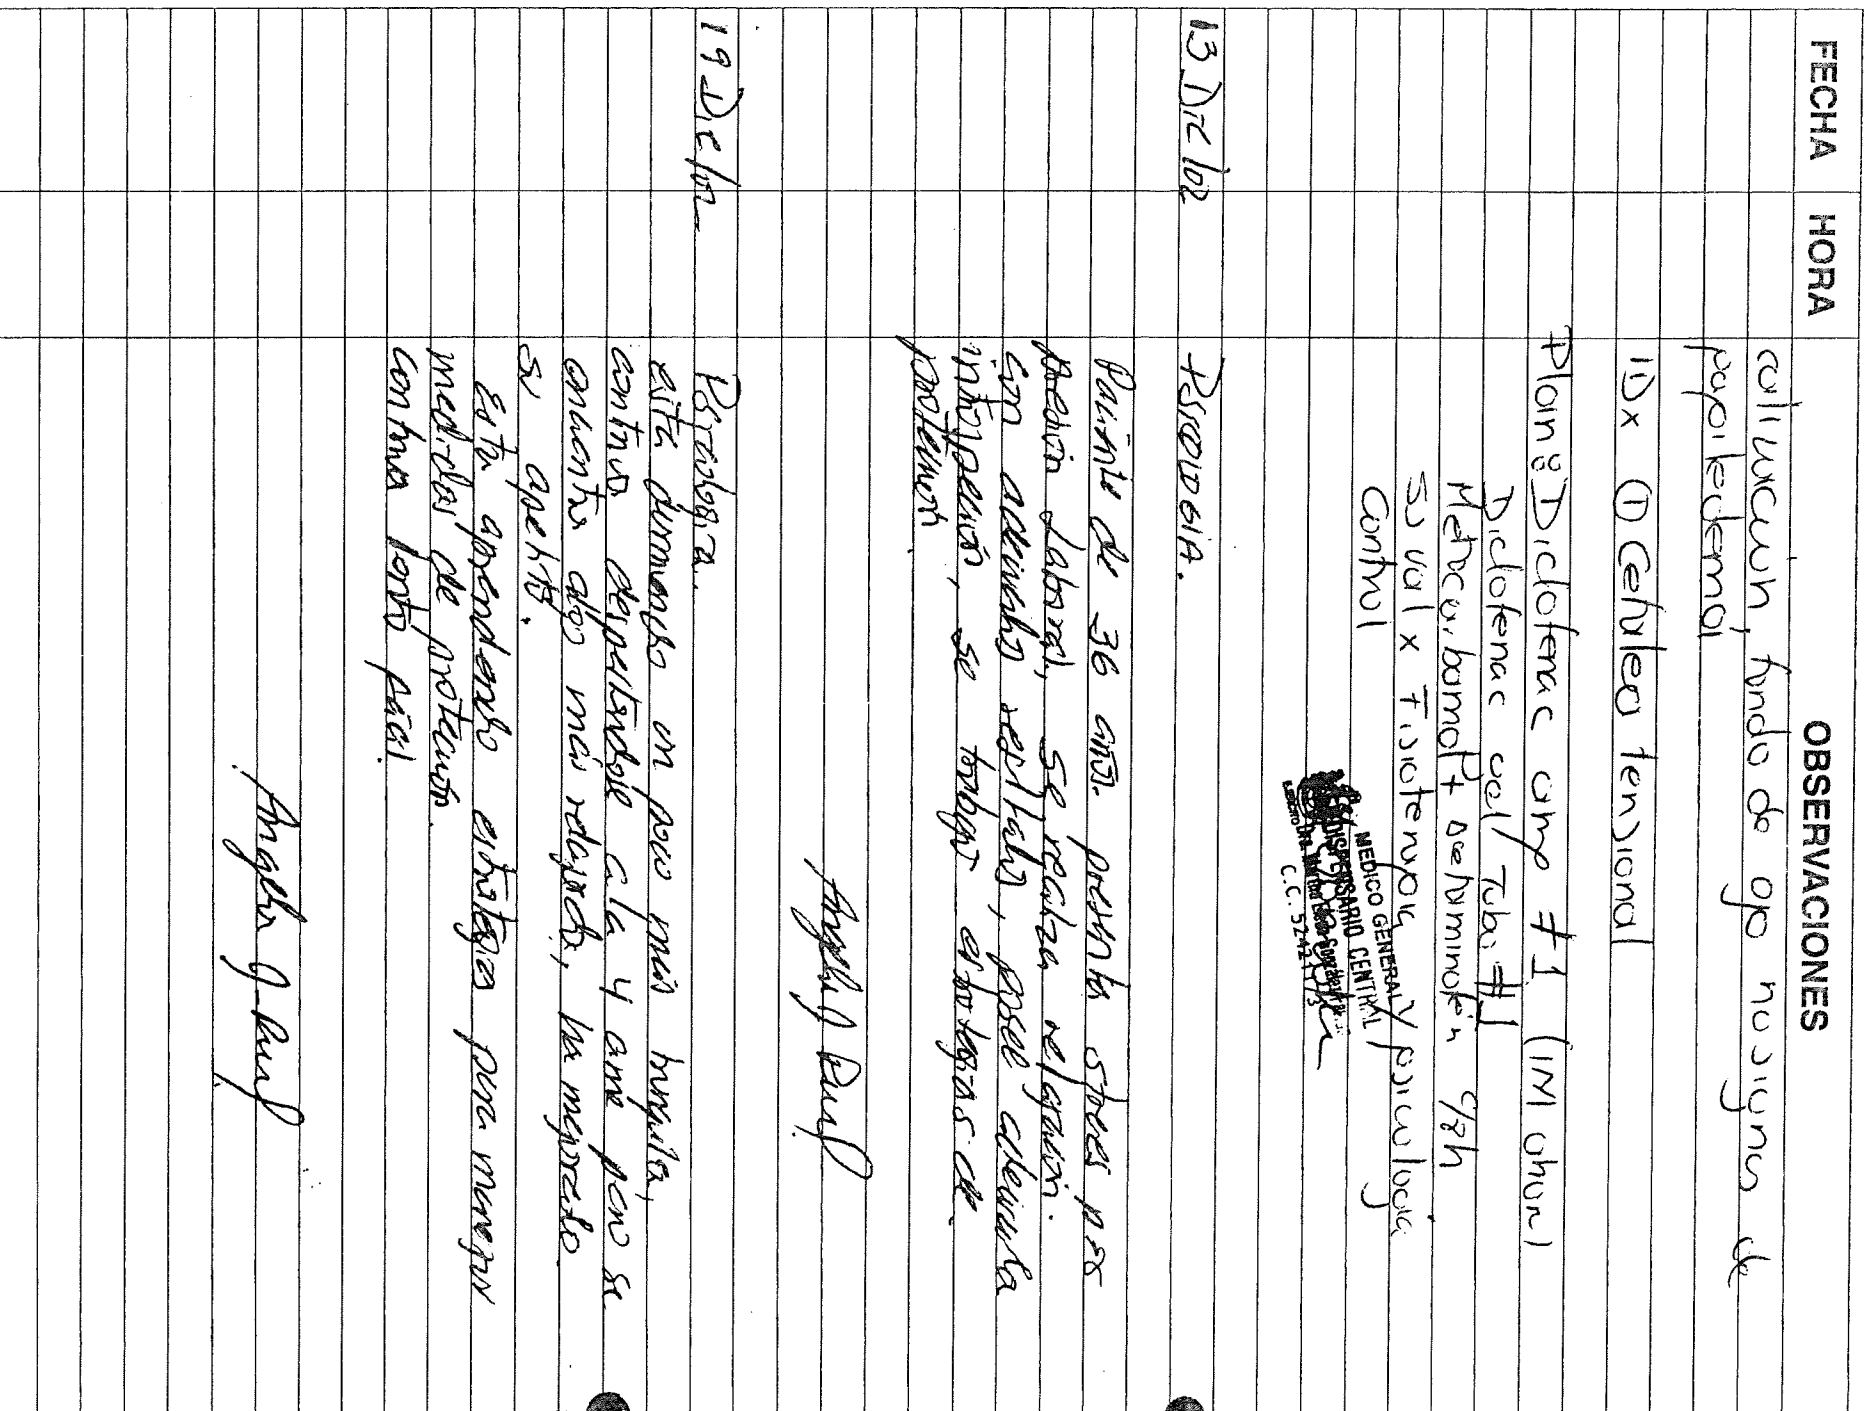 FECHA HORA OBSERVACIONES
fondo de ojo no signos de
papiledema
IDx ① Cefalea tensional
Plan: Diclofenac amp #1 (IM ahora)
Diclofenac gel / Tubo #1
Metocarbamol + acetaminofen c/8h
SS val x Fisioterapia y psicologia
Control
MEDICO GENERAL
DISPENSARIO CENTRAL
C.C.
13 Dic/02 PSICOLOGIA.
Paciente de 36 años. presenta stress por
presión laboral, se realiza relajación.
con adecuado resultado, posee adecuada
introspección, se trabajo estrategias de
protección
19 Dic/02 Psicología.
esta durmiendo un poco más tranquila,
continua despertandose a la 4 am pero se
encuentra algo más relajada, ha mejorado
su apetito.
Esta aprendiendo estrategias para manejar
medidas de protección.